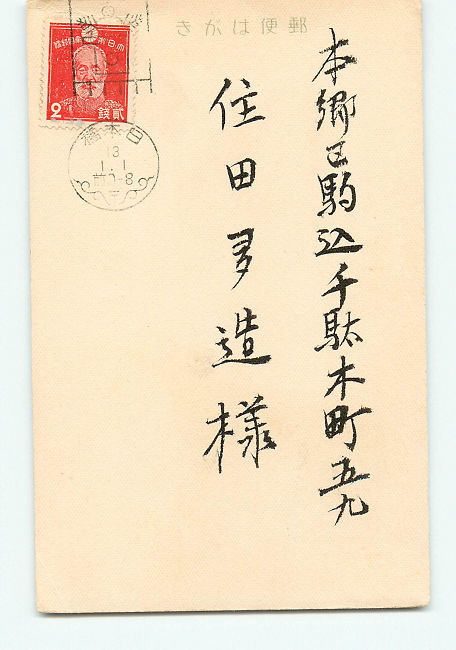 きがは便郵
本郷區駒込千駄木町五九
住田多造様
大日本帝國郵便
2
貳錢
日本橋
13
1.1
前0-8